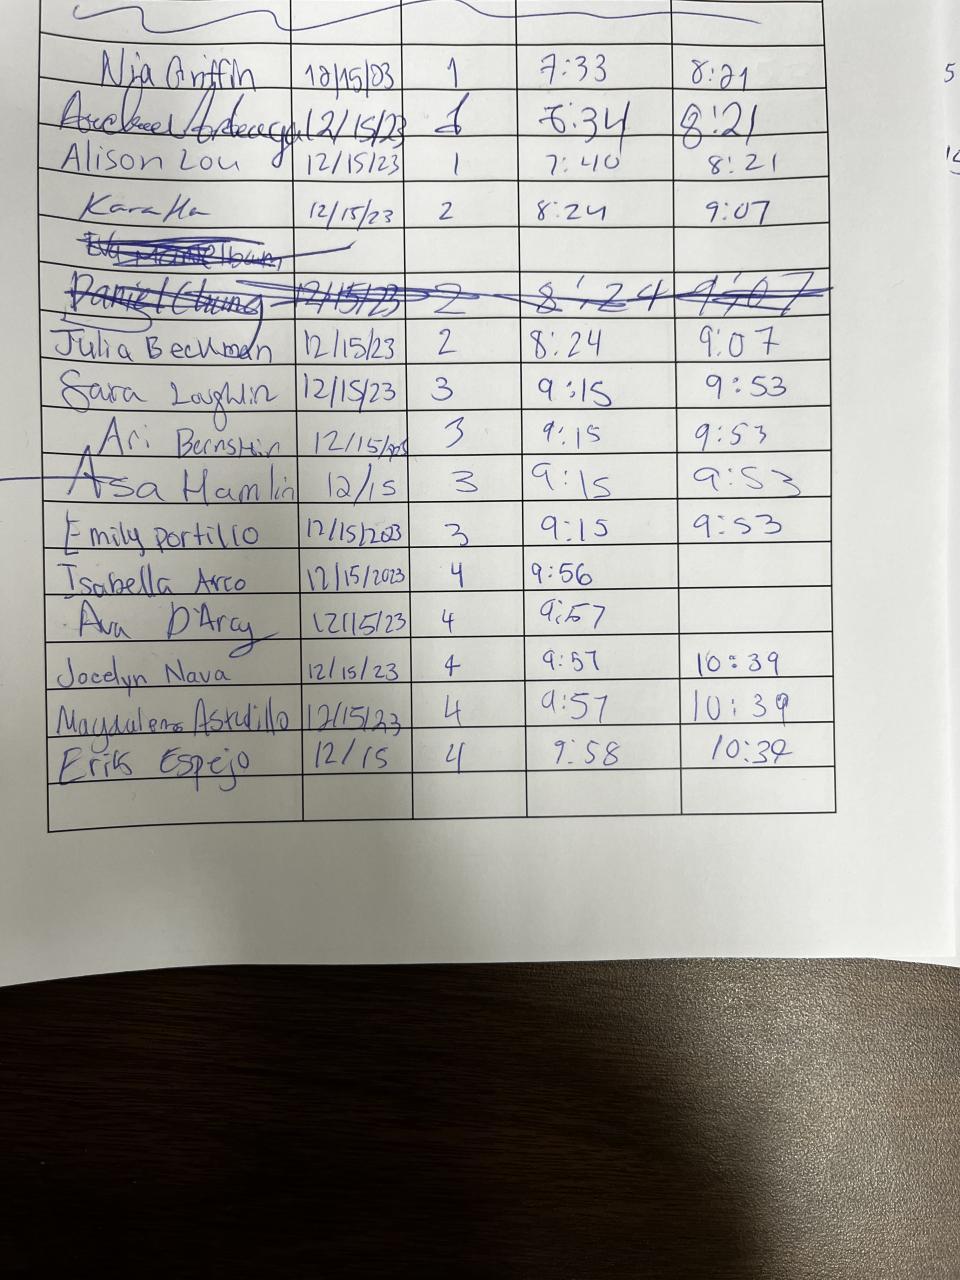 Nia Griffin 12/15/23 1 7:33 8:21
12/15/23 1 7:34 8:21
Alison Lou 12/15/23 1 7:40 8:21
Kara Ha 12/15/23 2 8:24 9:07
Daniel Chung 12/15/23 2 8:24 9:07
Julia Beckman 12/15/23 2 8:24 9:07
Sara Loughlin 12/15/23 3 9:15 9:53
Ari Bernstein 12/15/23 3 9:15 9:53
Asa Hamlin 12/15 3 9:15 9:53
Emily Portillo 12/15/2023 3 9:15 9:53
Isabella Arco 12/15/2023 4 9:56
Ava D'Arcy 12/15/23 4 9:57
Jocelyn Nava 12/15/23 4 9:57 10:39
Magdalena Astudillo 12/15/23 4 9:57 10:39
Erik Espejo 12/15 4 9:58 10:39